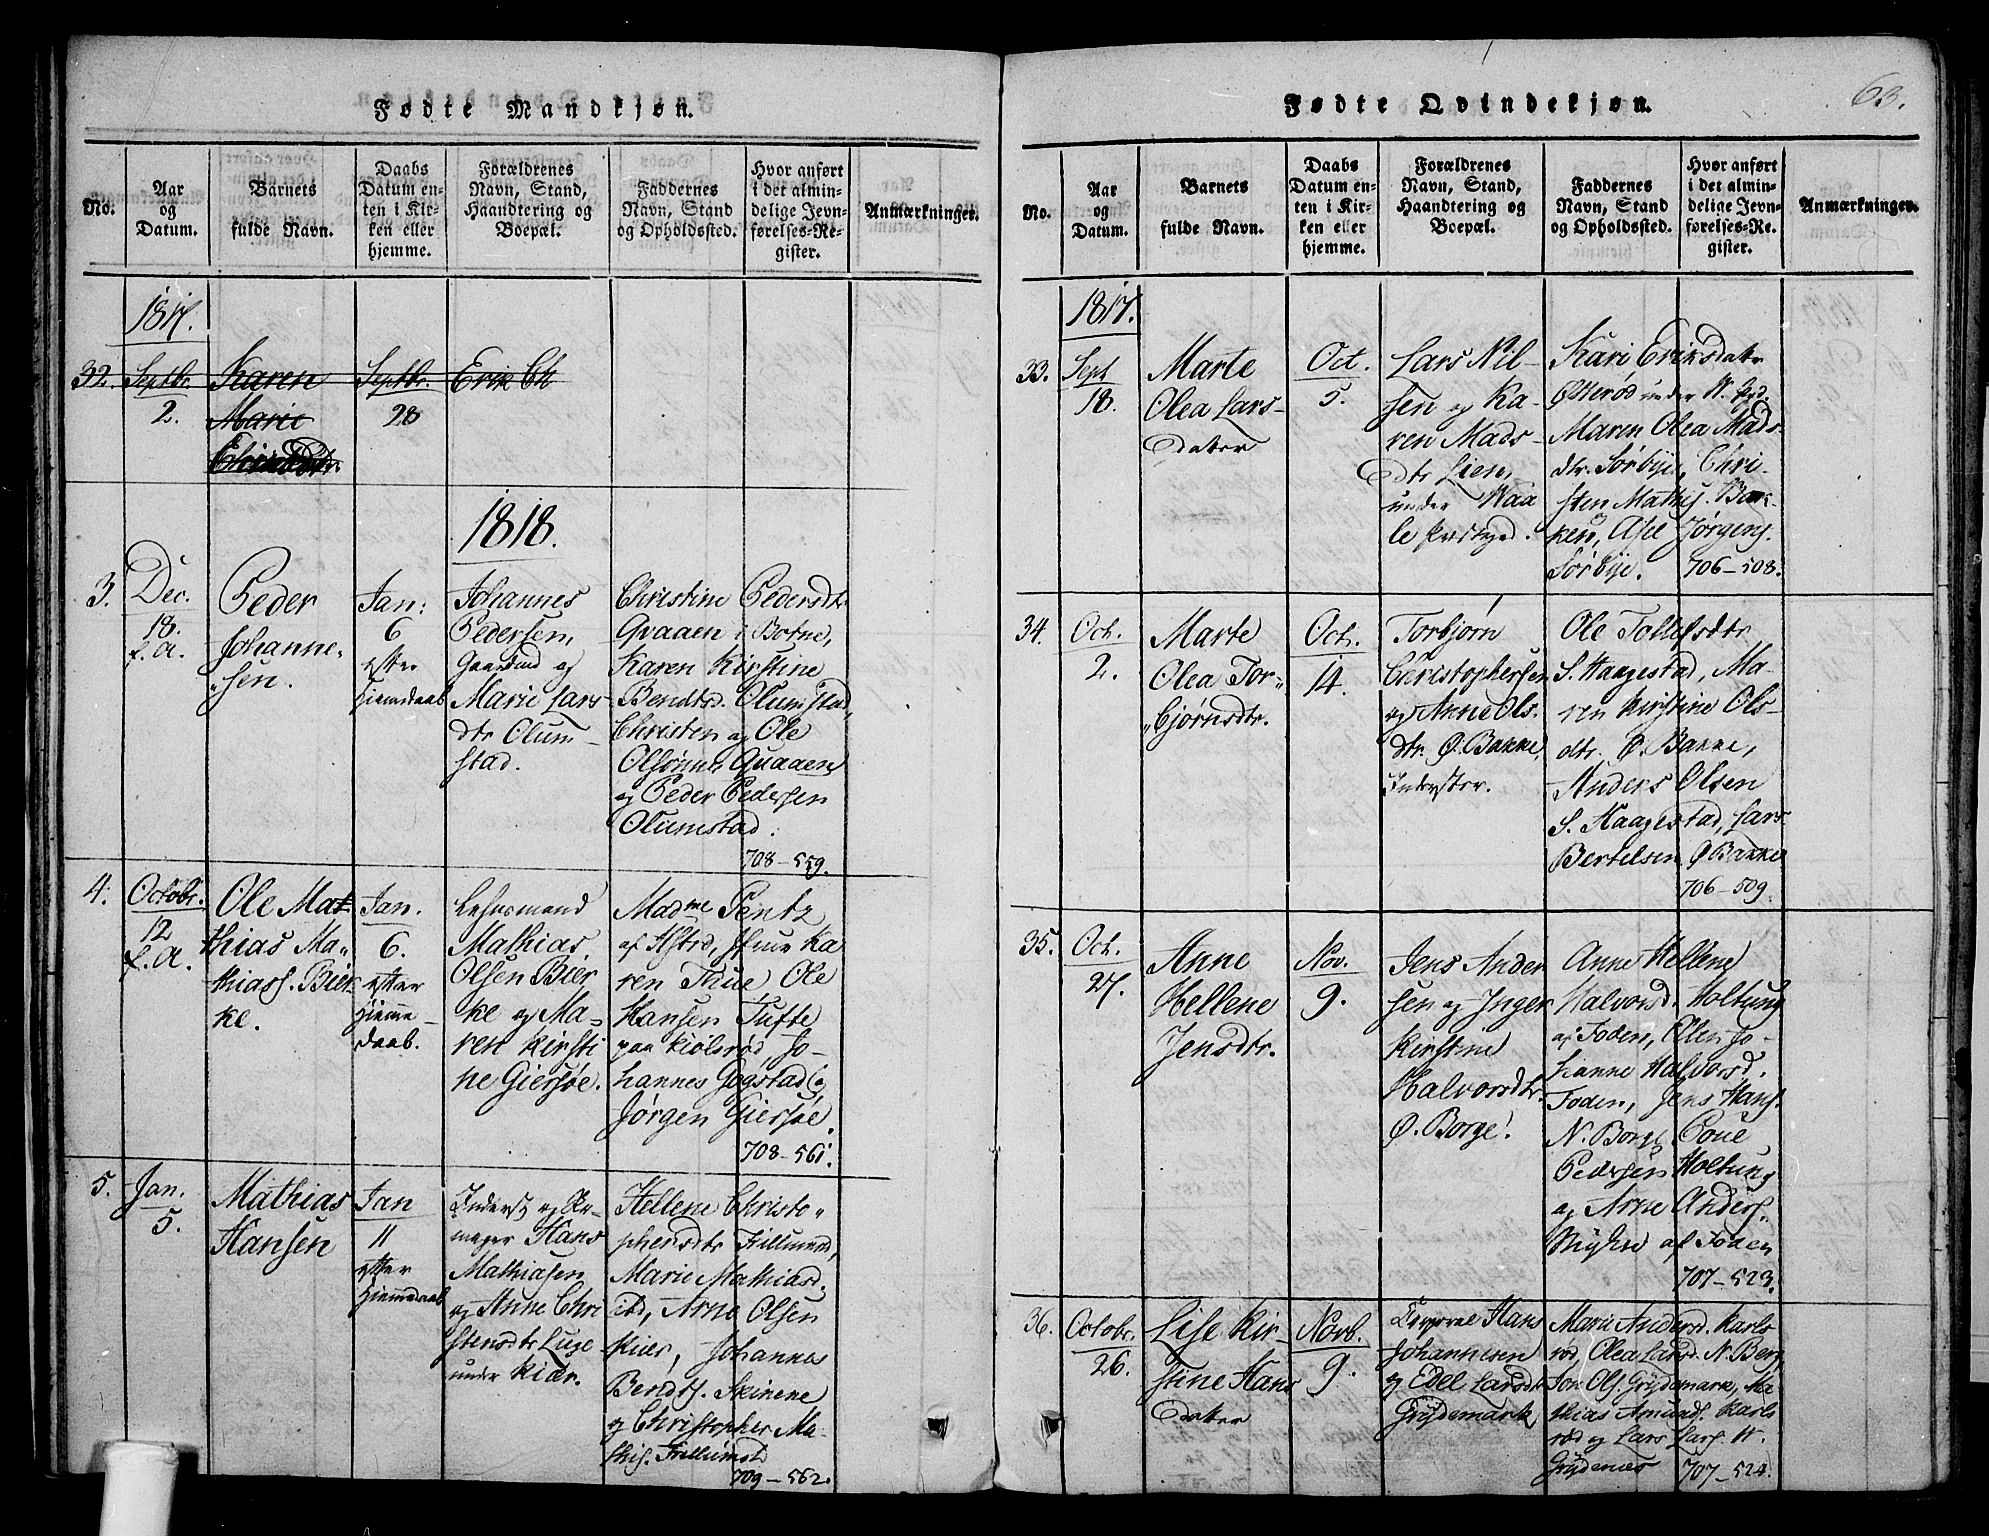 Fødte Mandkjøn.
No.
Aar
og
Datum.
Barnets
fulde Navn.
Daabs
Datum en-
ten i Kir-
ken eller
hjemme.
Forældrenes
Navn, Stand,
Haandtering og
Boepæl.
Faddernes
Navn, Stand
og Opholdssted.
Hvor anført
i det almin-
delige Jevn-
førelses-Re-
gister.
Anmærkninger.
1817.
32.
Septbr.
2.
Karen
Marie
Septbr.
28
Erik Ch
1818.
3.
Dec.
18.
f. A.
Peder
Johanne-
sen.
Jan:
6
efter
Hjemdaab
Johannes
Pedersen,
Gaardmd og
Marie Lars
dtr Olum-
stad.
Christine Pedersdtr
Qvaaen i Botne,
Karen Kirstine
Bendtsd. Olumstad,
Christen og Ole
Olsønner Qvaaen
og Peder Pedersen
Olumstad.
708-559.
4.
Octobr.
12
f. A.
Ole Mat
thias Ma-
thiass. Bier
ke.
Jan.
6.
efter
hjemme-
daab.
Lehnsmand
Mathias
Olsen Bier
ke og Ma-
ren Kirsti
ne Giersøe.
Madme Pentz
Ka
ren Thue Ole
Hansen Tufte
paa Kiølsrød Jo-
hannes Gogstad og
Jørgen Giersøe.
708-561.
5.
Jan.
5.
Mathias
Hansen
Jan
11
efter
Hjemdaab
Inderst og Sko-
mager Hans
Mathiasen
og Anne Chri
stensdtr Luse
under Kiær.
Hellene Christo-
phersdtr Frillumd,
Marie Mathiasd.
ibd, Arne Olsen
Kiær, Johannes
Bendts. Skinene
og Christopher Ma-
this. Frillumst
709-562.
Fødte Qvindekjøn.
63.
No.
Aar
og
Datum.
Barnets
fulde Navn.
Daabs
Datum en-
ten i Kir-
ken eller
hjemme.
Forældrenes
Navn, Stand,
Haandtering og
Boepæl.
Faddernes
Navn, Stand
og Opholdssted.
Hvor anført
i det almin-
delige Jevn-
førelses-Re-
gister.
Anmærkninger.
1817.
33.
Sept
18.
Marte
Olea Lars-
dater
Oct.
5.
Lars Nil-
sen og Ka-
ren Mads-
dtr Lien,
under Waa
le Præstegd.
Kari Eriksdatr
Østerød under
Maren Olea Mads-
dtr. Sørbye, Chri-
sten Mathis. Bak-
ken, Asle Jørgens.
Sørbye.
706-508.
34.
Oct.
2.
Marte
Olea Tor-
bjørnsdtr.
Oct.
14.
Torbjørn
Christophersen
og Anne Ols-
dtr. Ø. Bakke,
Inderster.
Ole Tollefsdtr
S. Haagestad, Ma-
ren Kirstine Ols-
dtr. Ø. Bakke,
Anders Olsen
S. Haagestad, Lars
Bertelsen Ø Bakke
706-509.
35.
Oct.
27.
Anne
Hellene
Jensdtr.
Nov.
9.
Jens Ander
sen og Inger
Kirstine
Halvorsdtr.
Ø. Borge.
Anne Hellene
Halvorsd. Holtung
af Foden, Ellen Jo-
hanne Halvorsd.
Foden, Jens Hans.
N. Borge
Pedersen Holtung
og Arne Anders.
Myhre af Foden
707-523.
36.
Octobr.
26.
Lise Kir-
stine Hans
dater
Novb.
9.
Corporal Hans
Johannesen
og Edel Larsdtr
Grydemark
Marie Andersd. Karls
rød, Olea Larsd. N. Berg,
Jon Ols. Grydemark, Ma
thias Amunds. Karls
rød og Lars Lars. H.
Grydenæs
707-524.